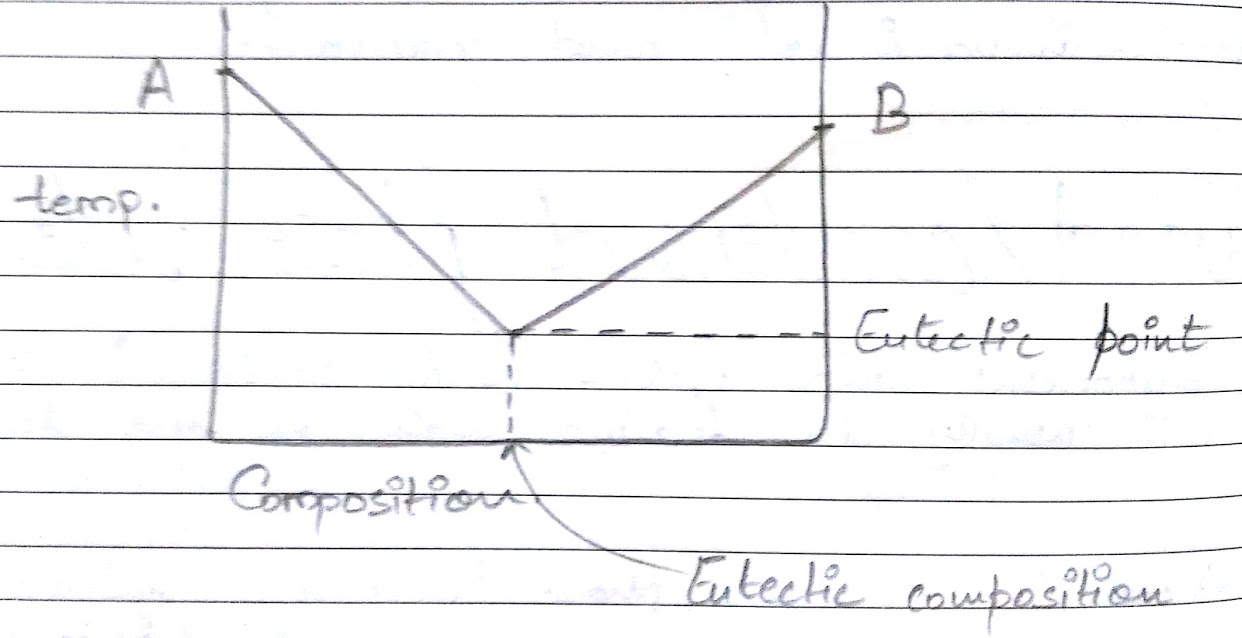 A
B
temp.
Eutectic point
Composition
Eutectic composition